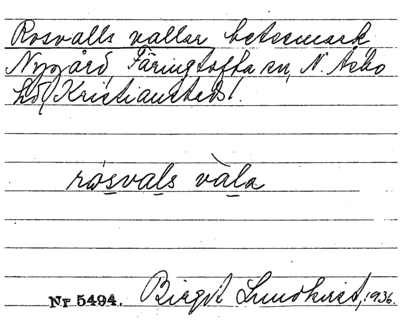 Rosvalls vallar betesmark
Nygård, Färingtofta sn, N. Åsbo
hd, Kristianstads l.
rósvals vàla
Nr 5494. Birgit Lundkvist, 1936.